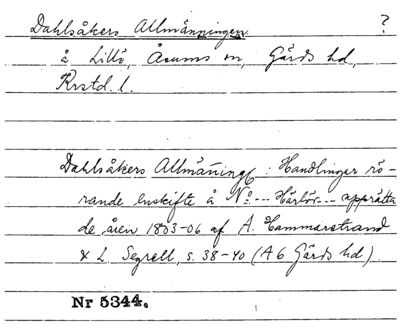 Dahlsåkers Allmänningen ?
å Lillö, Åsums sn, Gärds hd,
Krstd. l.
Dahlsåkers Allmäning : Handlingar rö-
rande enskifte å No --- Härlöv --- upprätta
de åren 1803-06 af A. Hammarstrand
& L. Segrell, s. 38-40 (A6 Gärds hd).
Nr 5344.